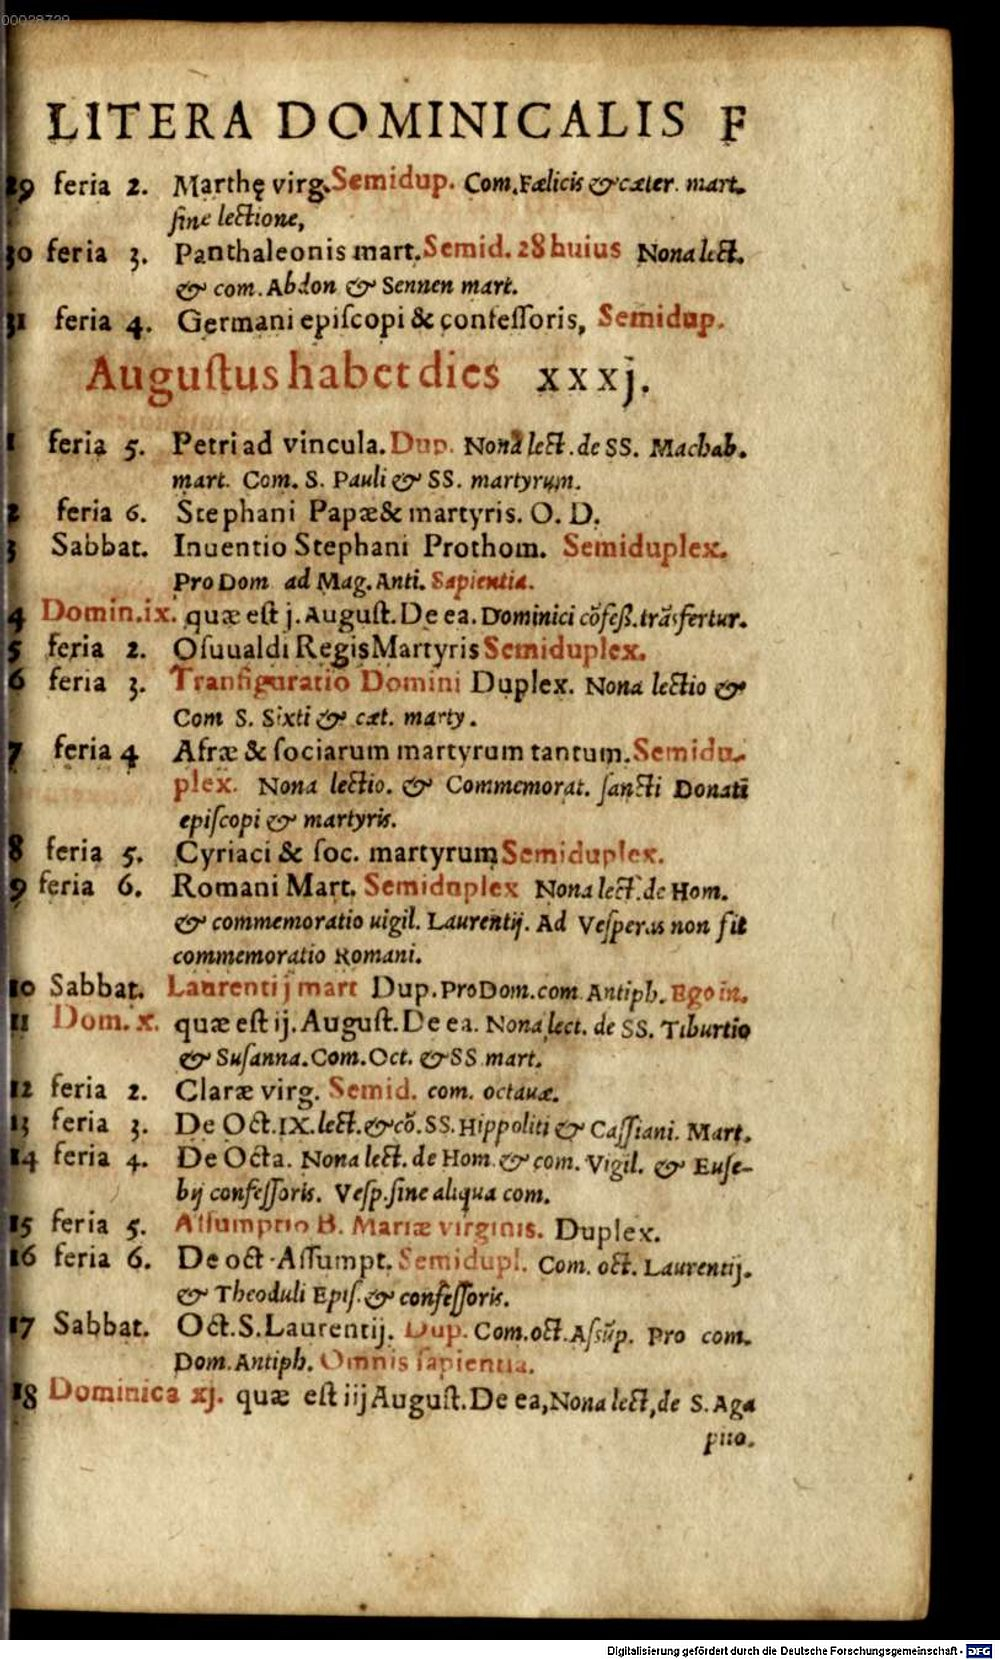 00028729
LITERA DOMINICALIS F
29 feria 2. Marthę virg. Semidup. Com. Fælicis & cæter. mart.
ſine lectione,
30 feria 3. Panthaleonis mart. Semid. 28 huius Nona lect.
& com. Abdon & Sennen mart.
31 feria 4. Germani epiſcopi & confeſſoris, Semidup.
Auguſtus habet dies xxxj.
1 feria 5. Petri ad vincula. Dup. Nona lect. de SS. Machab.
mart. Com. S. Pauli & SS. martyrum.
2 feria 6. Stephani Papæ & martyris. O. D.
3 Sabbat. Inuentio Stephani Prothom. Semiduplex.
Pro Dom ad Mag. Anti. Sapientia.
4 Domin. ix. quæ eſt j. Auguſt. De ea. Dominici cõfeß. trãſfertur.
5 feria 2. Oſuualdi Regis Martyris Semiduplex.
6 feria 3. Tranſiguratio Domini Duplex. Nona lectio &
Com S. Sixti & cæt. marty.
7 feria 4 Afræ & ſociarum martyrum tantum. Semidu-
plex. Nona lectio. & Commemorat. ſancti Donati
epiſcopi & martyris.
8 feria 5. Cyriaci & ſoc. martyrum Semiduplex.
9 feria 6. Romani Mart. Semiduplex Nona lect. de Hom.
& commemoratio uigil. Laurentij. Ad Veſperas non fit
commemoratio Romani.
10 Sabbat. Laurentij mart Dup. Pro Dom. com. Antiph. Ego in.
11 Dom. x. quæ eſt ij. Auguſt. De ea. Nona lect. de SS. Tiburtio
& Suſanna. Com. Oct. & SS. mart.
12 feria 2. Claræ virg. Semid. com. octauæ.
13 feria 3. De Oct. IX. lect. & cõ. SS. Hippoliti & Caſſiani. Mart.
14 feria 4. De Octa. Nona lect. de Hom. & com. Vigil. & Euſe-
bij confeſſoris. Veſp. ſine aliqua com.
15 feria 5. Aſſumptio B. Mariæ virginis. Duplex.
16 feria 6. De oct. Aſſumpt. Semidupl. Com. oct. Laurentij.
& Theoduli Epiſ. & confeſſoris.
17 Sabbat. Oct. S. Laurentij. Dup. Com. oct. Aſsũp. Pro com.
Dom. Antiph. Omnis ſapientia.
18 Dominica xj. quæ eſt iij Auguſt. De ea, Nona lect, de S. Aga
pito.
Digitalisierung gefördert durch die Deutsche Forschungsgemeinschaft - DFG